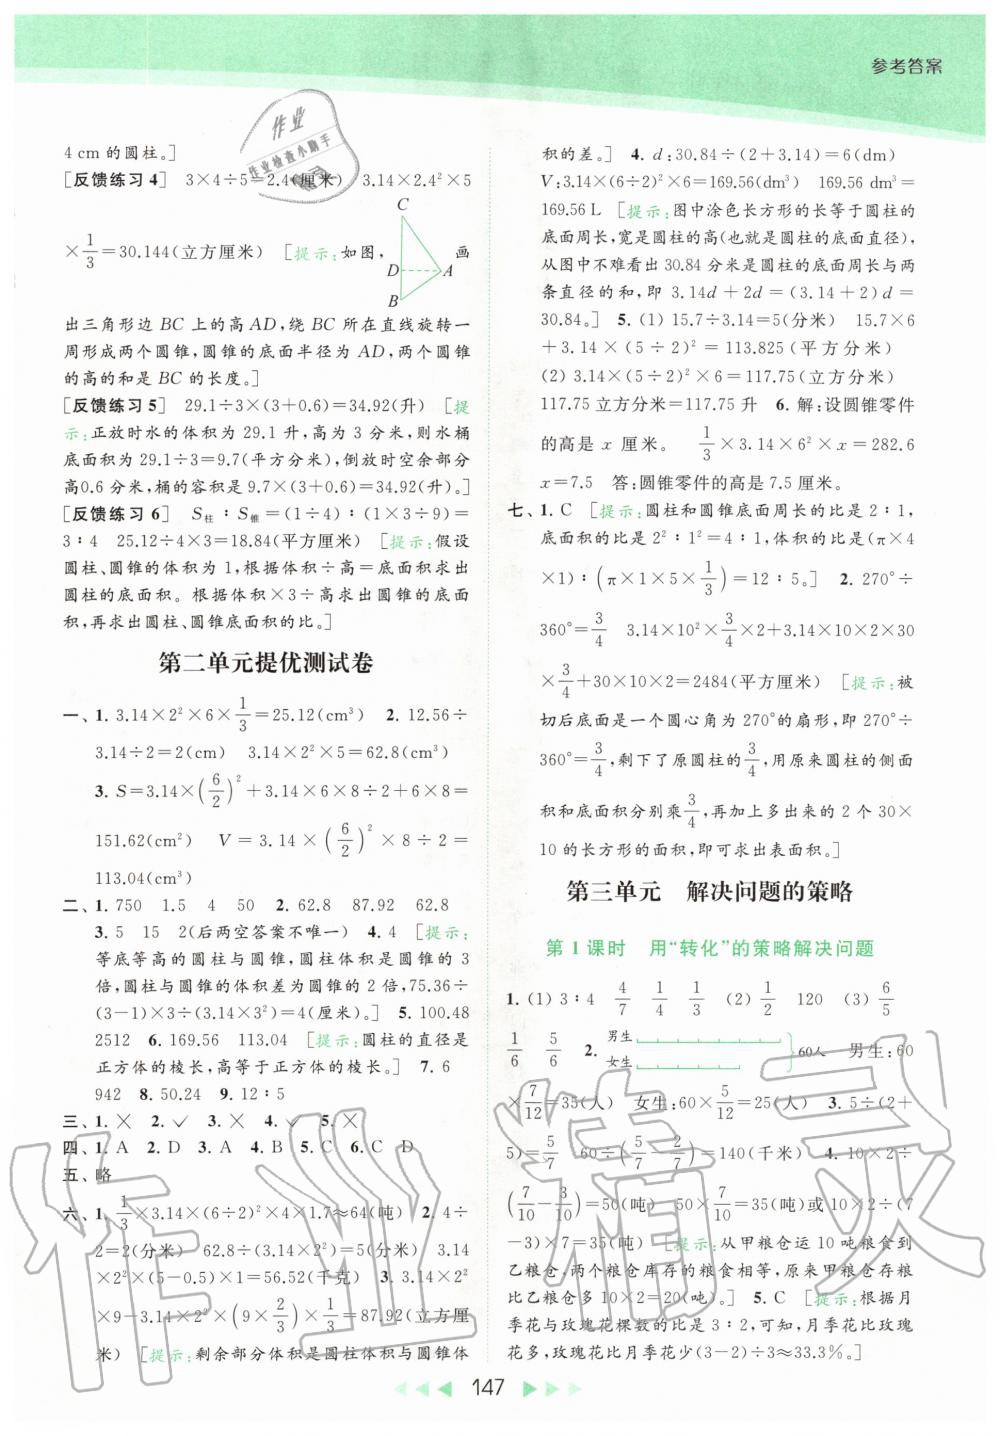 参考答案
作业
作业检查小助手
4 cm的圆柱。]
[反馈练习4] 3×4÷5=2.4(厘米) 3.14×2.4²×5
×1/3=30.144(立方厘米) [提示:如图, 画
C
D A
B
出三角形边BC上的高AD,绕BC所在直线旋转一
周形成两个圆锥,圆锥的底面半径为AD,两个圆锥
的高的和是BC的长度。]
[反馈练习5] 29.1÷3×(3+0.6)=34.92(升) [提
示:正放时水的体积为29.1升,高为3分米,则水桶
底面积为29.1÷3=9.7(平方分米),倒放时空余部分
高0.6分米,桶的容积是9.7×(3+0.6)=34.92(升)。]
[反馈练习6] S柱∶S锥=(1÷4)∶(1×3÷9)=
3∶4 25.12÷4×3=18.84(平方厘米) [提示:假设
圆柱、圆锥的体积为1,根据体积÷高=底面积求出
圆柱的底面积。根据体积×3÷高求出圆锥的底面
积,再求出圆柱、圆锥底面积的比。]
第二单元提优测试卷
一、1. 3.14×2²×6×1/3=25.12(cm³) 2. 12.56÷
3.14÷2=2(cm) 3.14×2²×5=62.8(cm³)
3. S=3.14×(6/2)²+3.14×6×8÷2+6×8=
151.62(cm²) V=3.14×(6/2)²×8÷2=
113.04(cm³)
二、1. 750 1.5 4 50 2. 62.8 87.92 62.8
3. 5 15 2(后两空答案不唯一) 4. 4 [提示:
等底等高的圆柱与圆锥,圆柱体积是圆锥的3
倍,圆柱与圆锥的体积差为圆锥的2倍,75.36÷
(3-1)×3÷(3.14×3²)=4(厘米)。] 5. 100.48
2512 6. 169.56 113.04 [提示:圆柱的直径是
正方体的棱长,高等于正方体的棱长。] 7. 6
942 8. 50.24 9. 12∶5
三、1. × 2. ✓ 3. × 4. ✓ 5. ×
四、1. A 2. D 3. A 4. B 5. C 6. C D
五、略
六、1. 1/3×3.14×(6÷2)²×4×1.7≈64(吨) 2. 4÷
2=2(分米) 62.8÷(3.14×2²)=5(分米) 3.14
×2²×(5-0.5)×1=56.52(千克) 3. 3.14×2²
×9-3.14×2²×(9×2/3)×1/3=87.92(立方厘
米) [提示:剩余部分体积是圆柱体积与圆锥体
积的差。] 4. d:30.84÷(2+3.14)=6(dm)
V:3.14×(6÷2)²×6=169.56(dm³) 169.56 dm³=
169.56 L [提示:图中涂色长方形的长等于圆柱的
底面周长,宽是圆柱的高(也就是圆柱的底面直径),
从图中不难看出30.84分米是圆柱的底面周长与两
条直径的和,即3.14d+2d=(3.14+2)d=
30.84。] 5. (1) 15.7÷3.14=5(分米) 15.7×6
+3.14×(5÷2)²=113.825(平方分米)
(2) 3.14×(5÷2)²×6=117.75(立方分米)
117.75立方分米=117.75升 6. 解:设圆锥零件
的高是x厘米。 1/3×3.14×6²×x=282.6
x=7.5 答:圆锥零件的高是7.5厘米。
七、1. C [提示:圆柱和圆锥底面周长的比是2∶1,
底面积的比是2²∶1²=4∶1,体积的比是(π×4
×1)∶(π×1×5×1/3)=12∶5。] 2. 270°÷
360°=3/4 3.14×10²×3/4×2+3.14×10×2×30
×3/4+30×10×2=2484(平方厘米) [提示:被
切后底面是一个圆心角为270°的扇形,即270°÷
360°=3/4,剩下了原圆柱的3/4,用原来圆柱的侧面
积和底面积分别乘3/4,再加上多出来的2个30×
10的长方形的面积,即可求出表面积。]
第三单元 解决问题的策略
第1课时 用“转化”的策略解决问题
1. (1) 3∶4 4/7 1/4 1/3 (2) 1/2 120 (3) 6/5
1/6 5/6 2. 男生 女生 60人 男生:60
×7/12=35(人) 女生:60×5/12=25(人) 3. 5÷(2+
5)=5/7 60÷(5/7-2/7)=140(千米) 4. 10×2÷
(7/10-3/10)=50(吨) 50×7/10=35(吨)或10×2÷(7
-3)×7=35(吨) [提示:从甲粮仓运10吨粮食到
乙粮仓,两个粮仓库存的粮食相等,原来甲粮仓存粮
比乙粮仓多10×2=20(吨)。] 5. C [提示:根据月
季花与玫瑰花棵数的比是3∶2,可知,月季花比玫瑰
花多,玫瑰花比月季花少(3-2)÷3≈33.3%。]
147
作业精灵